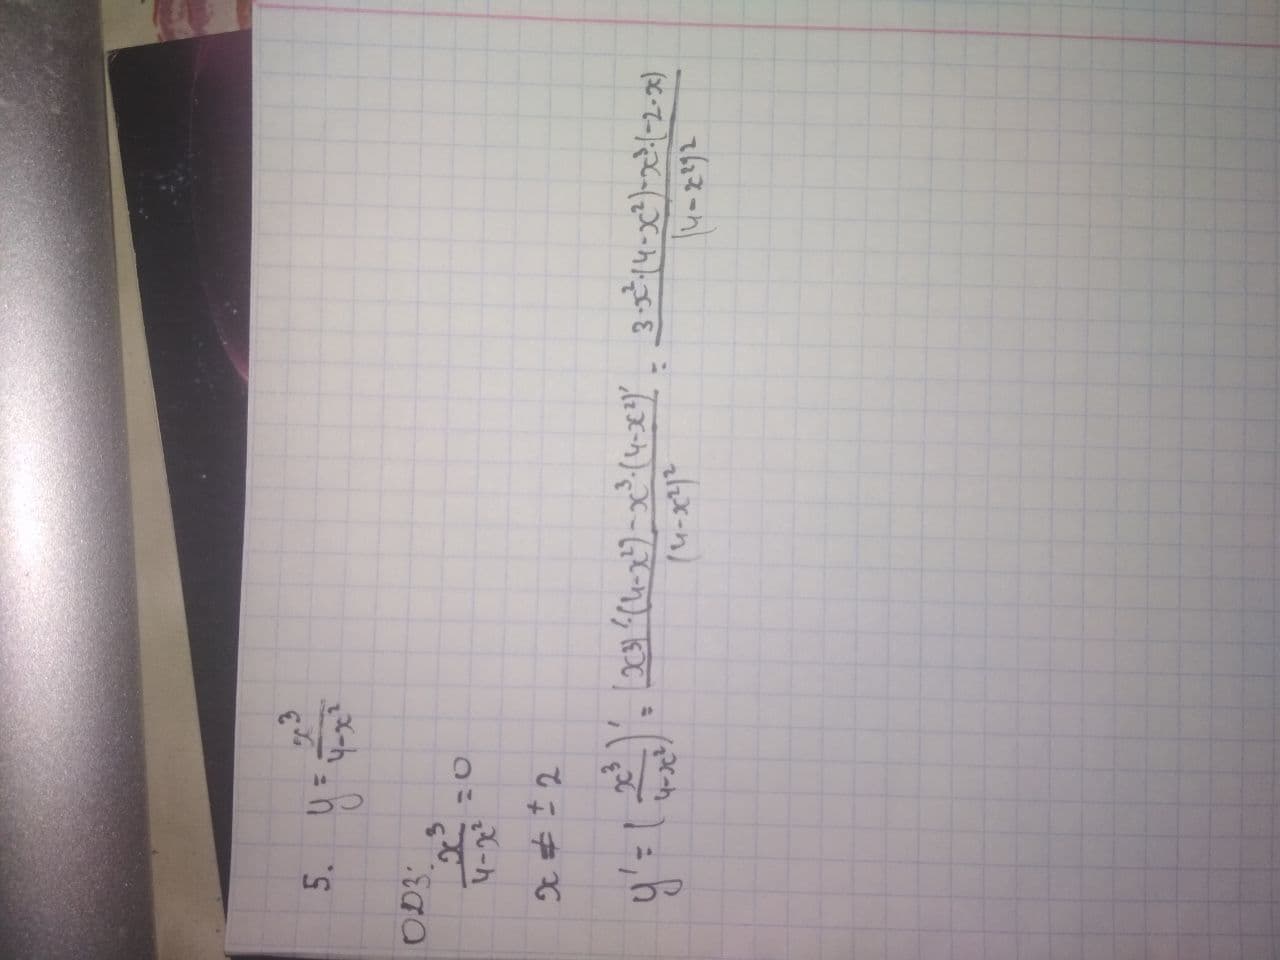 5. y = x³/(4-x²)
ОДЗ:
x³/(4-x²) = 0
x ≠ ± 2
y' = (x³/(4-x²))' = ((x³)'·(4-x²)-x³·(4-x²)')/(4-x²)² = (3·x²·(4-x²)-x³·(-2·x))/(4-x²)²